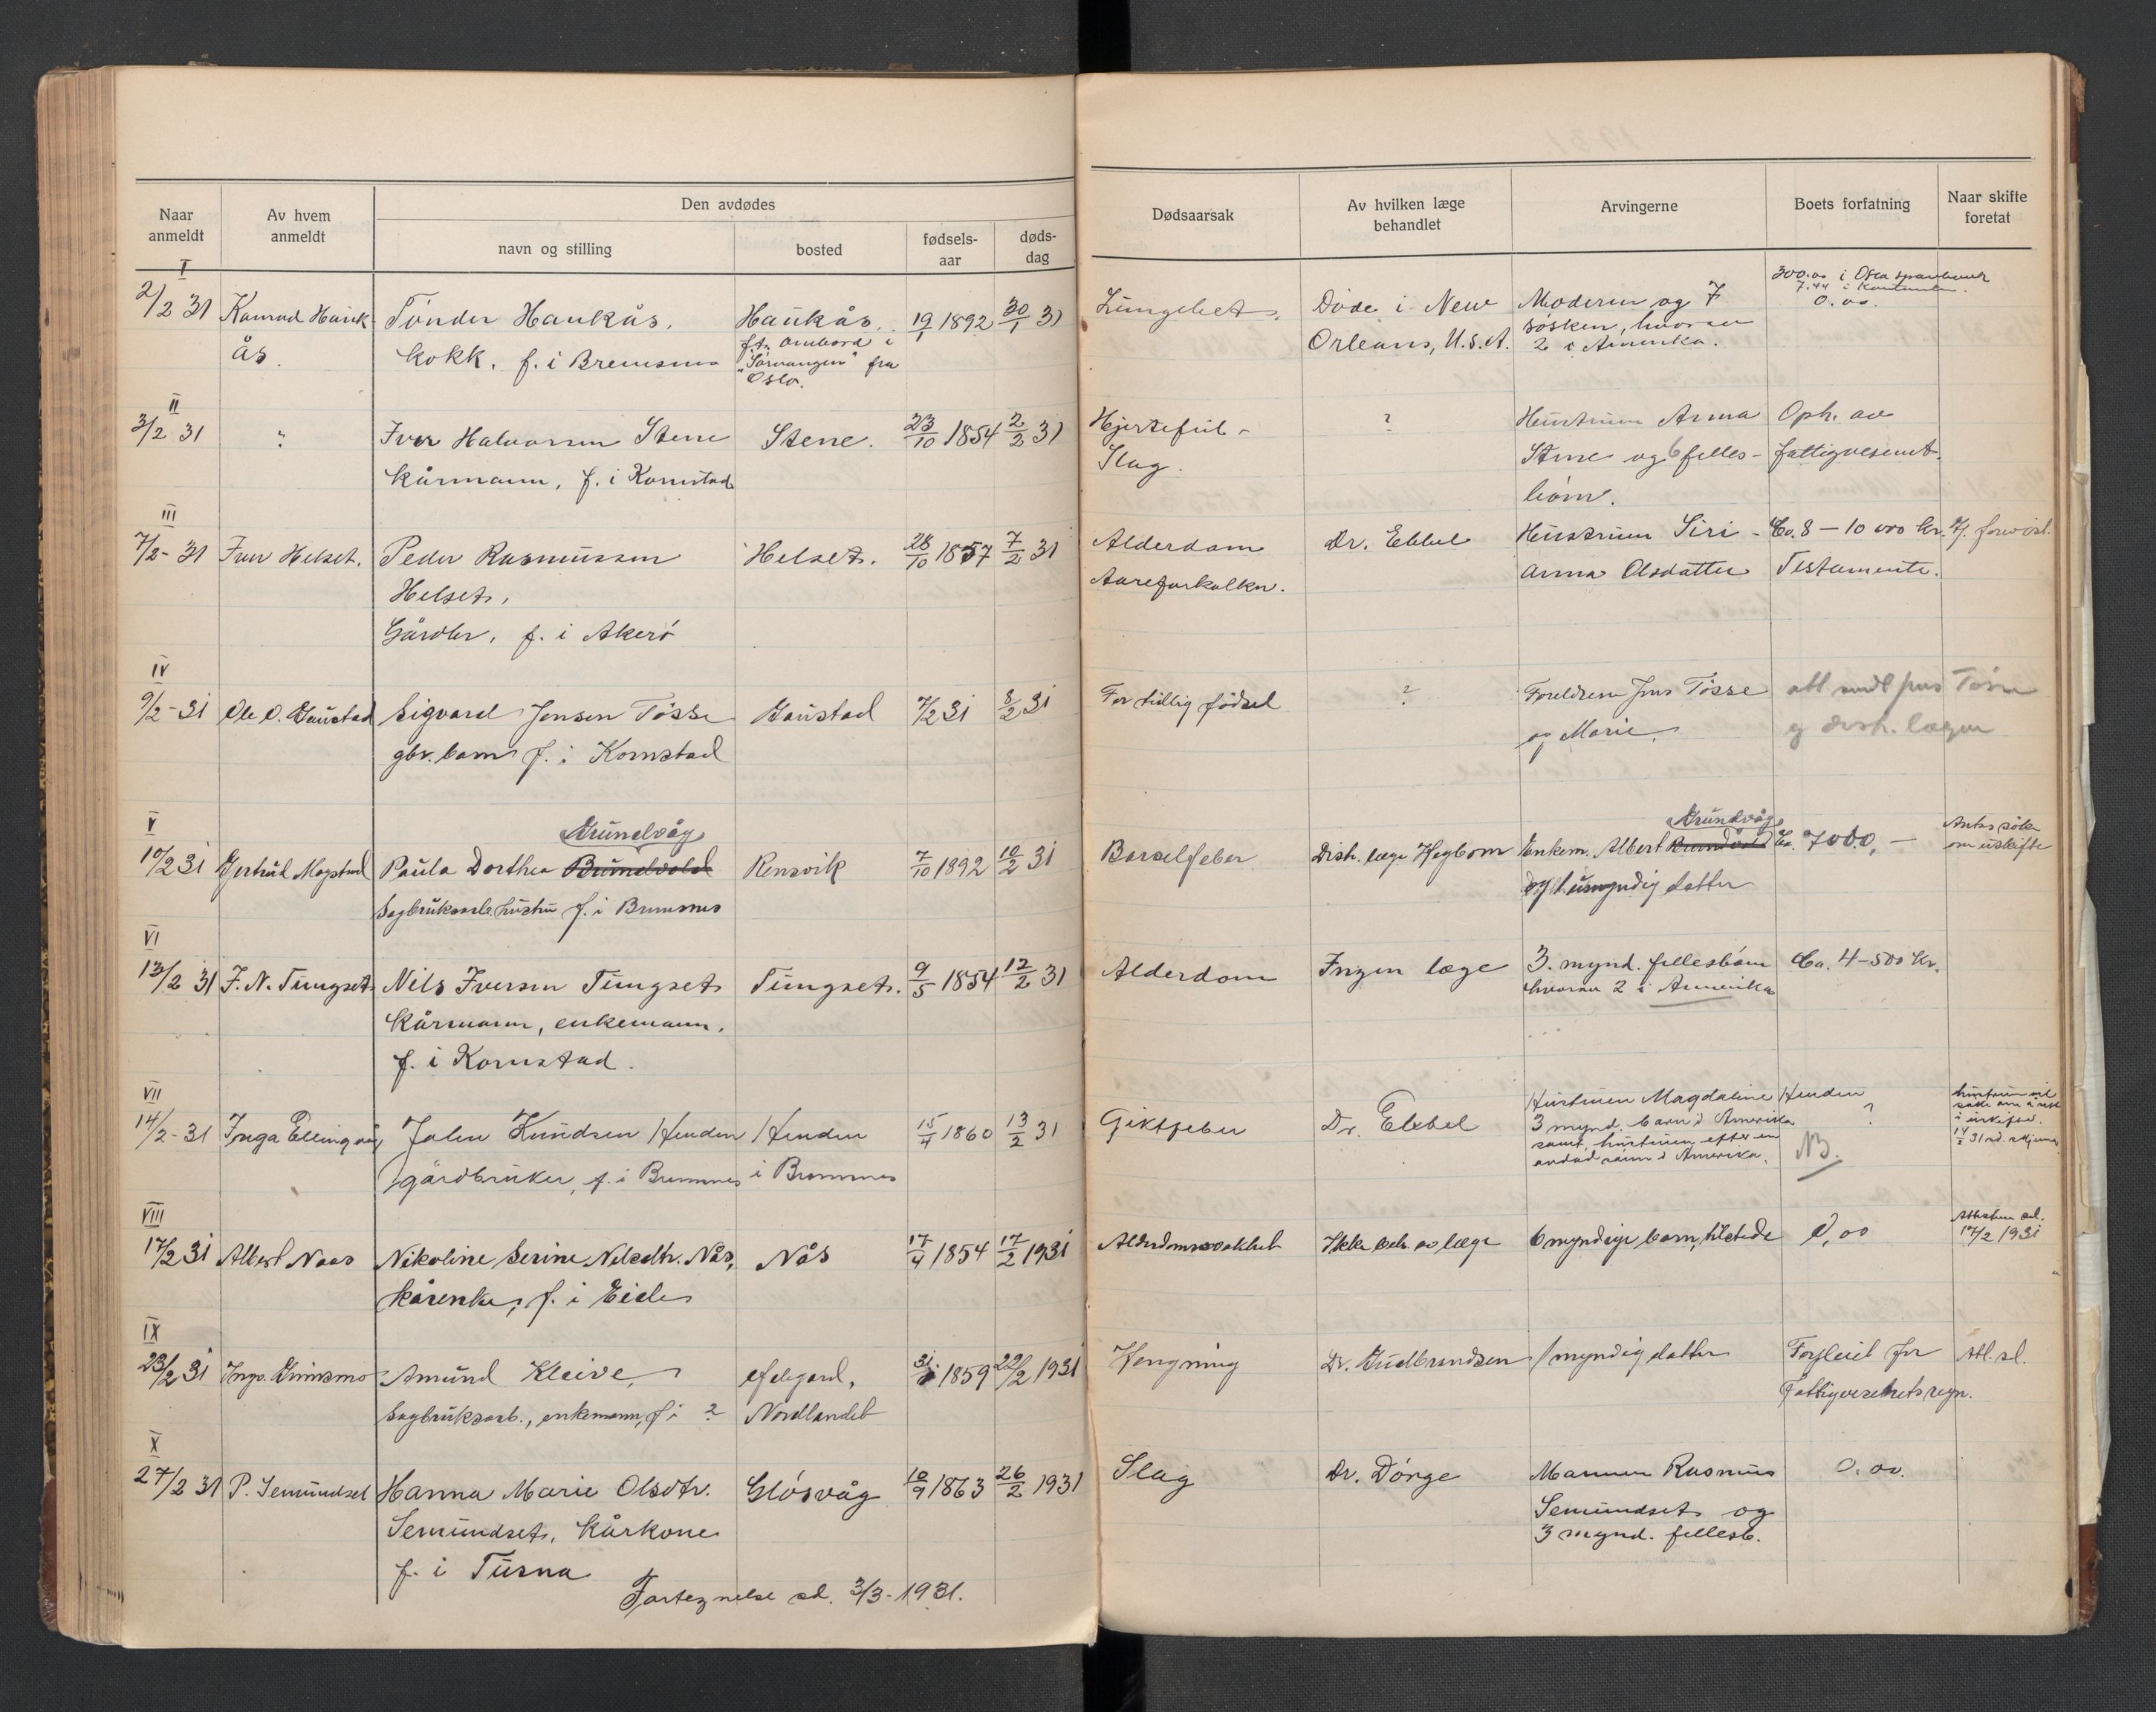 Naar
anmeldt
Av hvem
anmeldt
Den avdødes
navn og stilling
bosted
fødsels-
aar
døds-
dag
Dødsaarsak
Av hvilken læge
behandlet
Arvingerne
Boets forfatning
Naar skifte
foretat
I
2/2 31 Konrad Hauk- Tønder Haukås, Haukås, 19/1 1892 30/1 31 Døde i New Moderen og 7 300.00 i Oslo sparebank
ås. kokk, f. i Bremsnes ombord i Orleans, U.S.A. søsken, hvorav 7.44 i
fra 2 i Amerika. 0.00.
Oslo.
II
3/2 31 " Iver Halvorsen Stene Stene. 23/10 1854 2/2 31 Hjertefeil - ? Hustruen Anna Oph. av
kårmann, f. i Kornstad Slag. Stene og 6 felles- fattigvesenet.
børn.
III
7/2-31 Iver Helset. Peder Rasmussen Helset. 28/10 1857 7/2 31 Alderdom Dr. Ebbel Hustruen Siri - Ca. 8 - 10 000 kr.
Helset, Aareforkalkn. Anna Olsdatter Testamente.
Gårdbr, f. i Akerø
IV
9/2-31 Ole O. Gaustad Sigvard Jensen Tøsse Gaustad 7/2 31 8/2 31 For tidlig fødsel ? Foreldrene Jens Tøsse att sendt
gbr. barn f. i Kornstad og Marie. distr. lægen
V
Grundvåg
Grundvåg
10/2 31 Gertrud Magstad Paula Dorthea Brundvold Rensvik 7/10 1892 10/2 31 Barselfeber Distr. læge Hegbom Enkem. Albert Brundvold Ca. 7000,-
Sagbruksarb. hustru f. i Bremsnes og 1 umyndig datter om uskifte
VI
13/2 31 I. N. Tungset Nils Iversen Tungset Tungset. 9/5 1854 12/2 31 Alderdom Ingen læge 3. mynd. fellesbørn Ca. 4-500 kr.
kårmann, enkemann. hvorav 2 i Amerika
f. i Kornstad.
VII
14/2-31 Inga Ellingvåg John Knudsen Henden Henden 15/4 1860 13/2 31 Giktfeber Dr. Ebbel Hustruen Magdaline Henden ? hustruen vil
gårdbruker, f. i Bremsnes i Bremsnes 3 mynd. barn i Amerika
samt hustruen efter en NB.
avdød sønn i Amerika. 14/2 31
VIII
17/2 31 Albert Naas Nikoline Serine Nilsdtr. Nås, Nås 17/4 1854 17/2 1931 Alderdomssvakhet Ikke beh. av læge 6 myndige barn, tilstede 0,00 Attesten sd.
kårenke, f. i Eide 17/2 1931
IX
23/2 31 Inga Grimsmo Amund Kleive, 1859 22/2 1931 Hengning Dr. Gudbrandsen 1 myndig datter Forpleiet for Att. sd.
Sagbruksarb., enkemann, f. i ? Nordlandet Fattigvesenets regn.
X
27/2 31 P. Semundset Hanna Marie Olsdtr. Gløsvåg 10/9 1863 26/2 1931 Slag Dr. Dørge Mannen Rasmus 0.00.
Semundset, kårkone Semundset og
f. i Tusna 3 mynd. fellesb.
Fortegnelse sd. 3/3-1931.